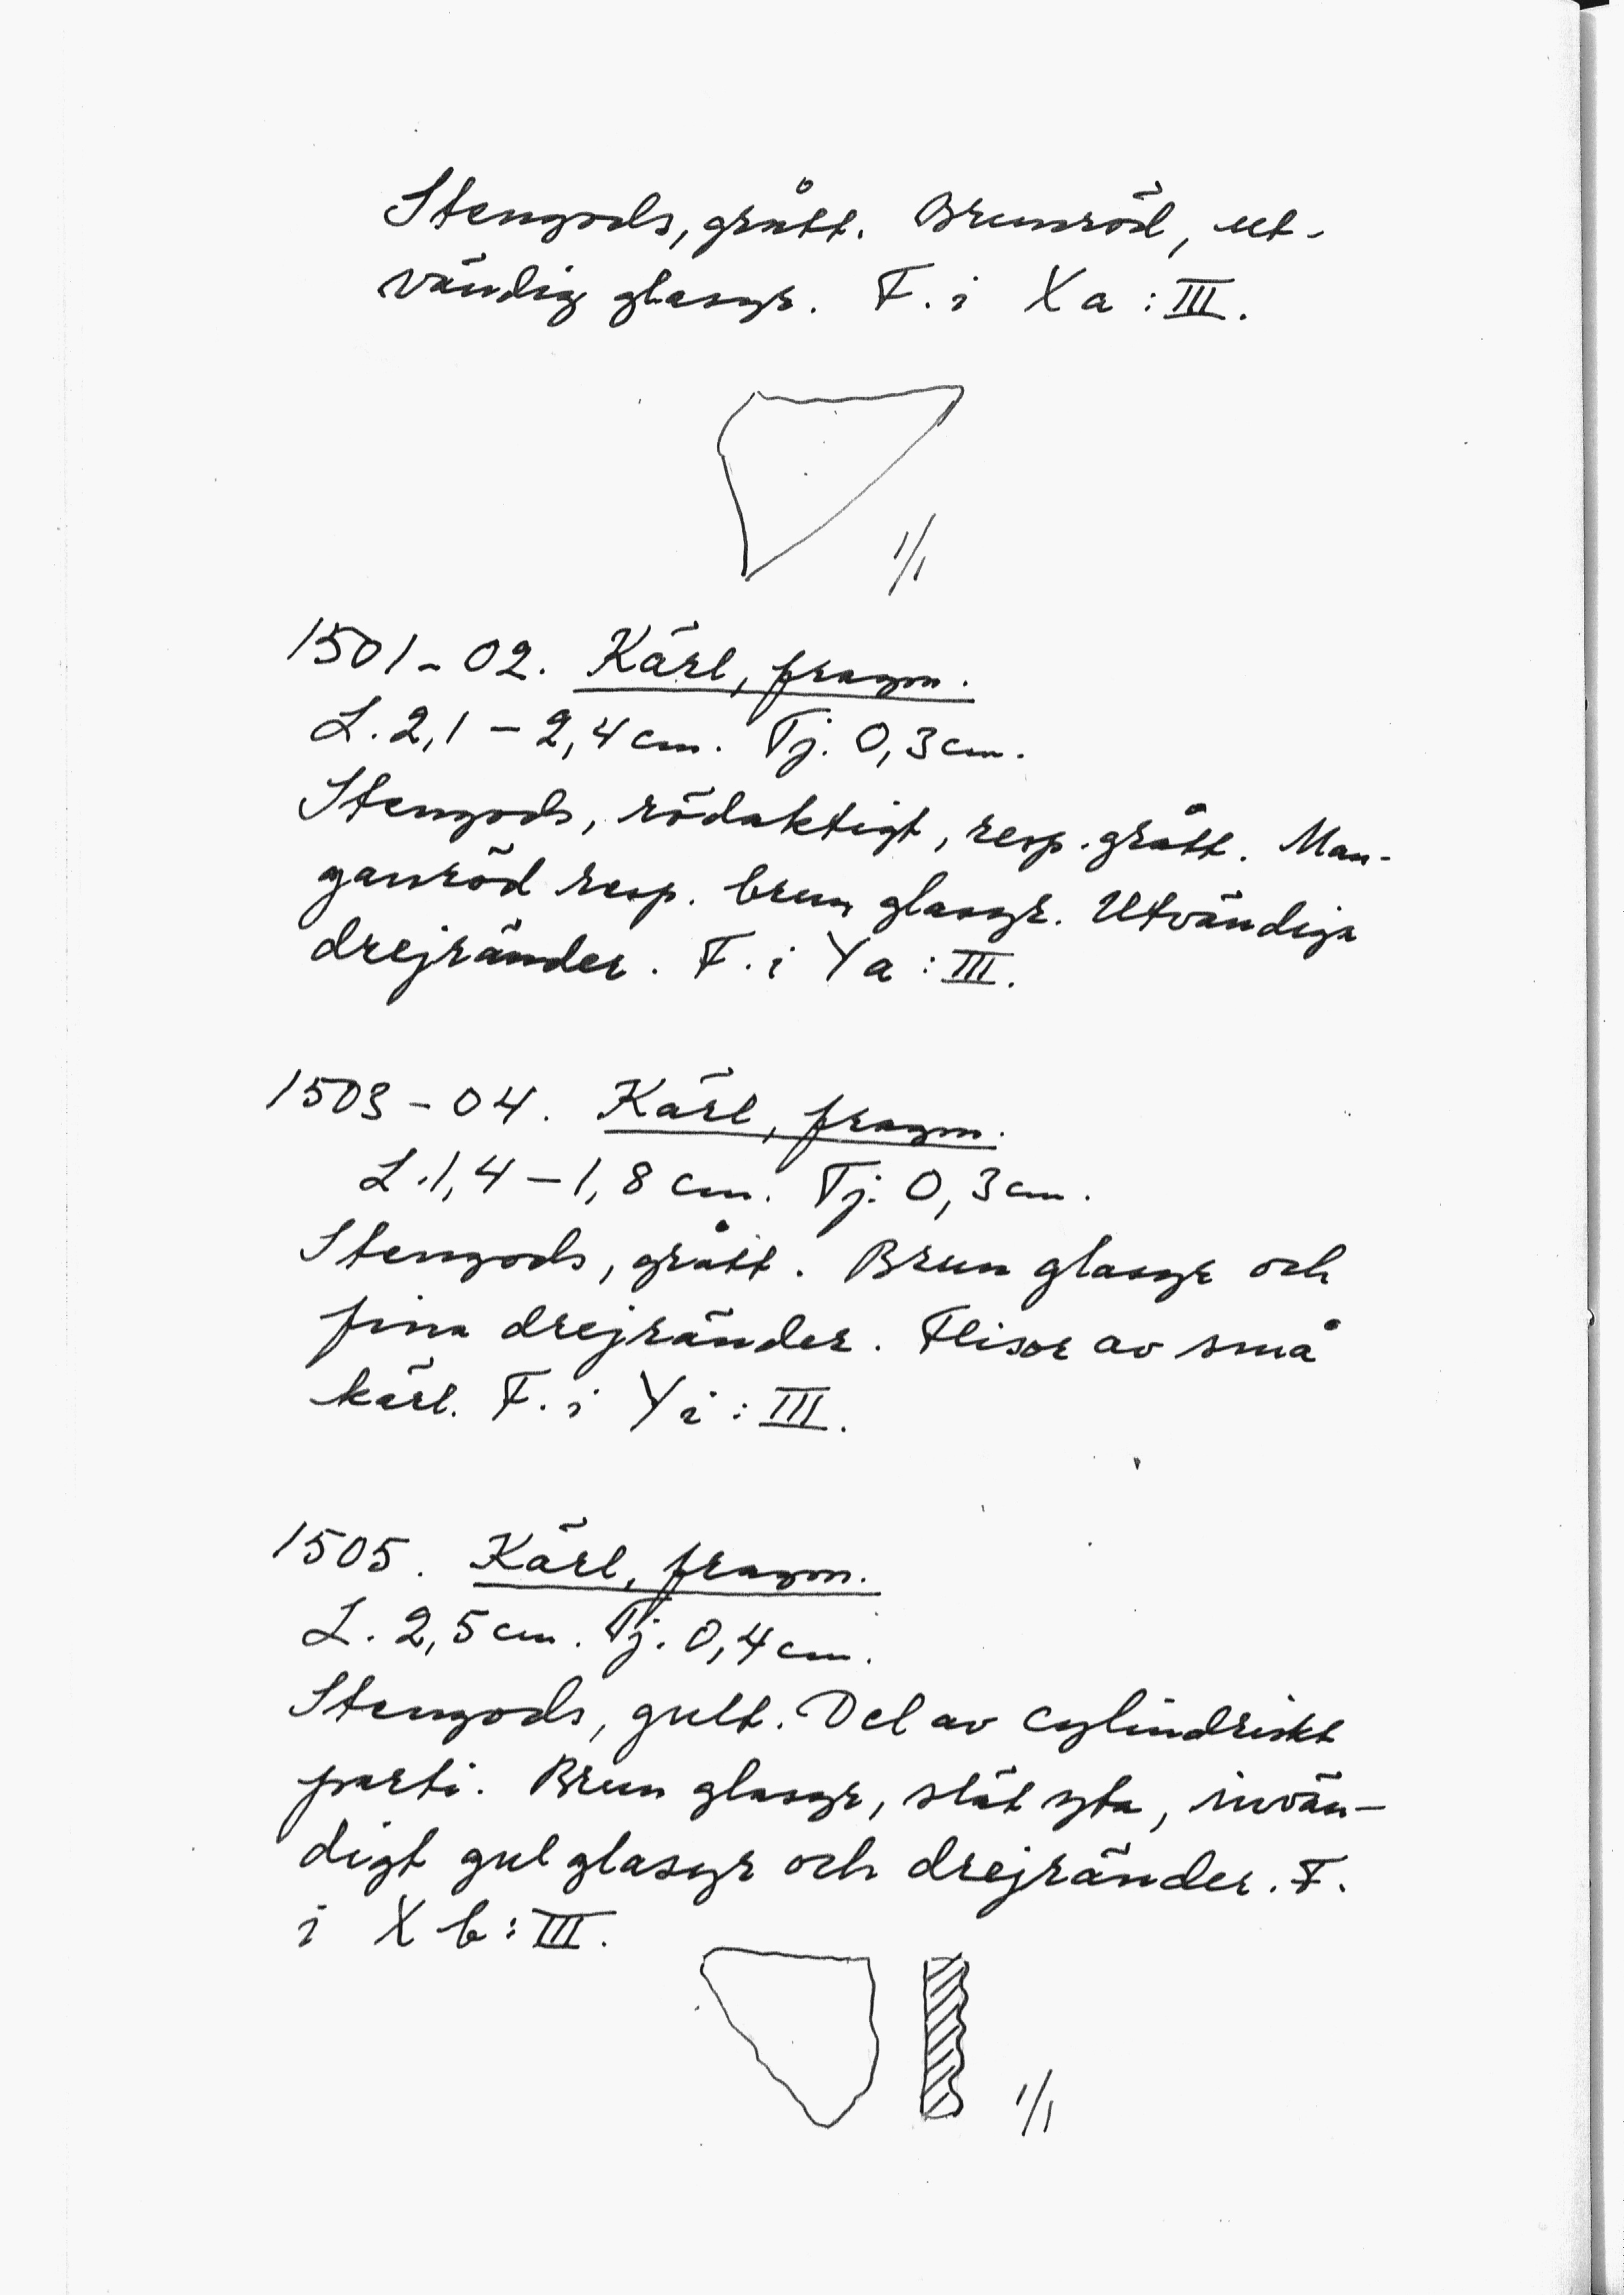 Stengods, grått. Brunröd, ut-
vändig glasyr. F. i Xa : III.
1/1
1501-02. Kärl, fragm.
L. 2,1 - 2,4 cm. Tj. 0,3 cm.
Stengods, rödaktigt, resp. grått. Man-
ganröd resp. brun glasyr. Utvändiga
drejränder. F. i Ya : III.
1503-04. Kärl, fragm.
L. 1,4 - 1,8 cm. Tj. 0,3 cm.
Stengods, grått. Brun glasyr och
fina drejränder. Flisor av små
kärl. F. i Yi : III.
1505. Kärl, fragm.
L. 2,5 cm. Tj. 0,4 cm.
Stengods, gult. Del av cylindriskt
parti. Brun glasyr, slät yta, invän-
digt gul glasyr och drejränder. F.
i Xb : III.
1/1